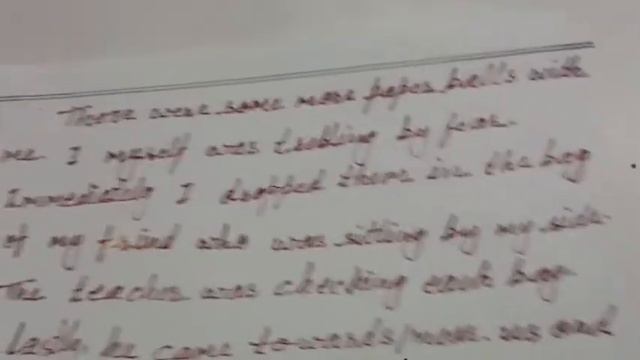 There were some more paper balls with
me. I myself was by fear.
Immediately I dropped them in the bag
of my friend who was sitting by my side.
The teacher was checking each bag.
Lastly he came towards us and